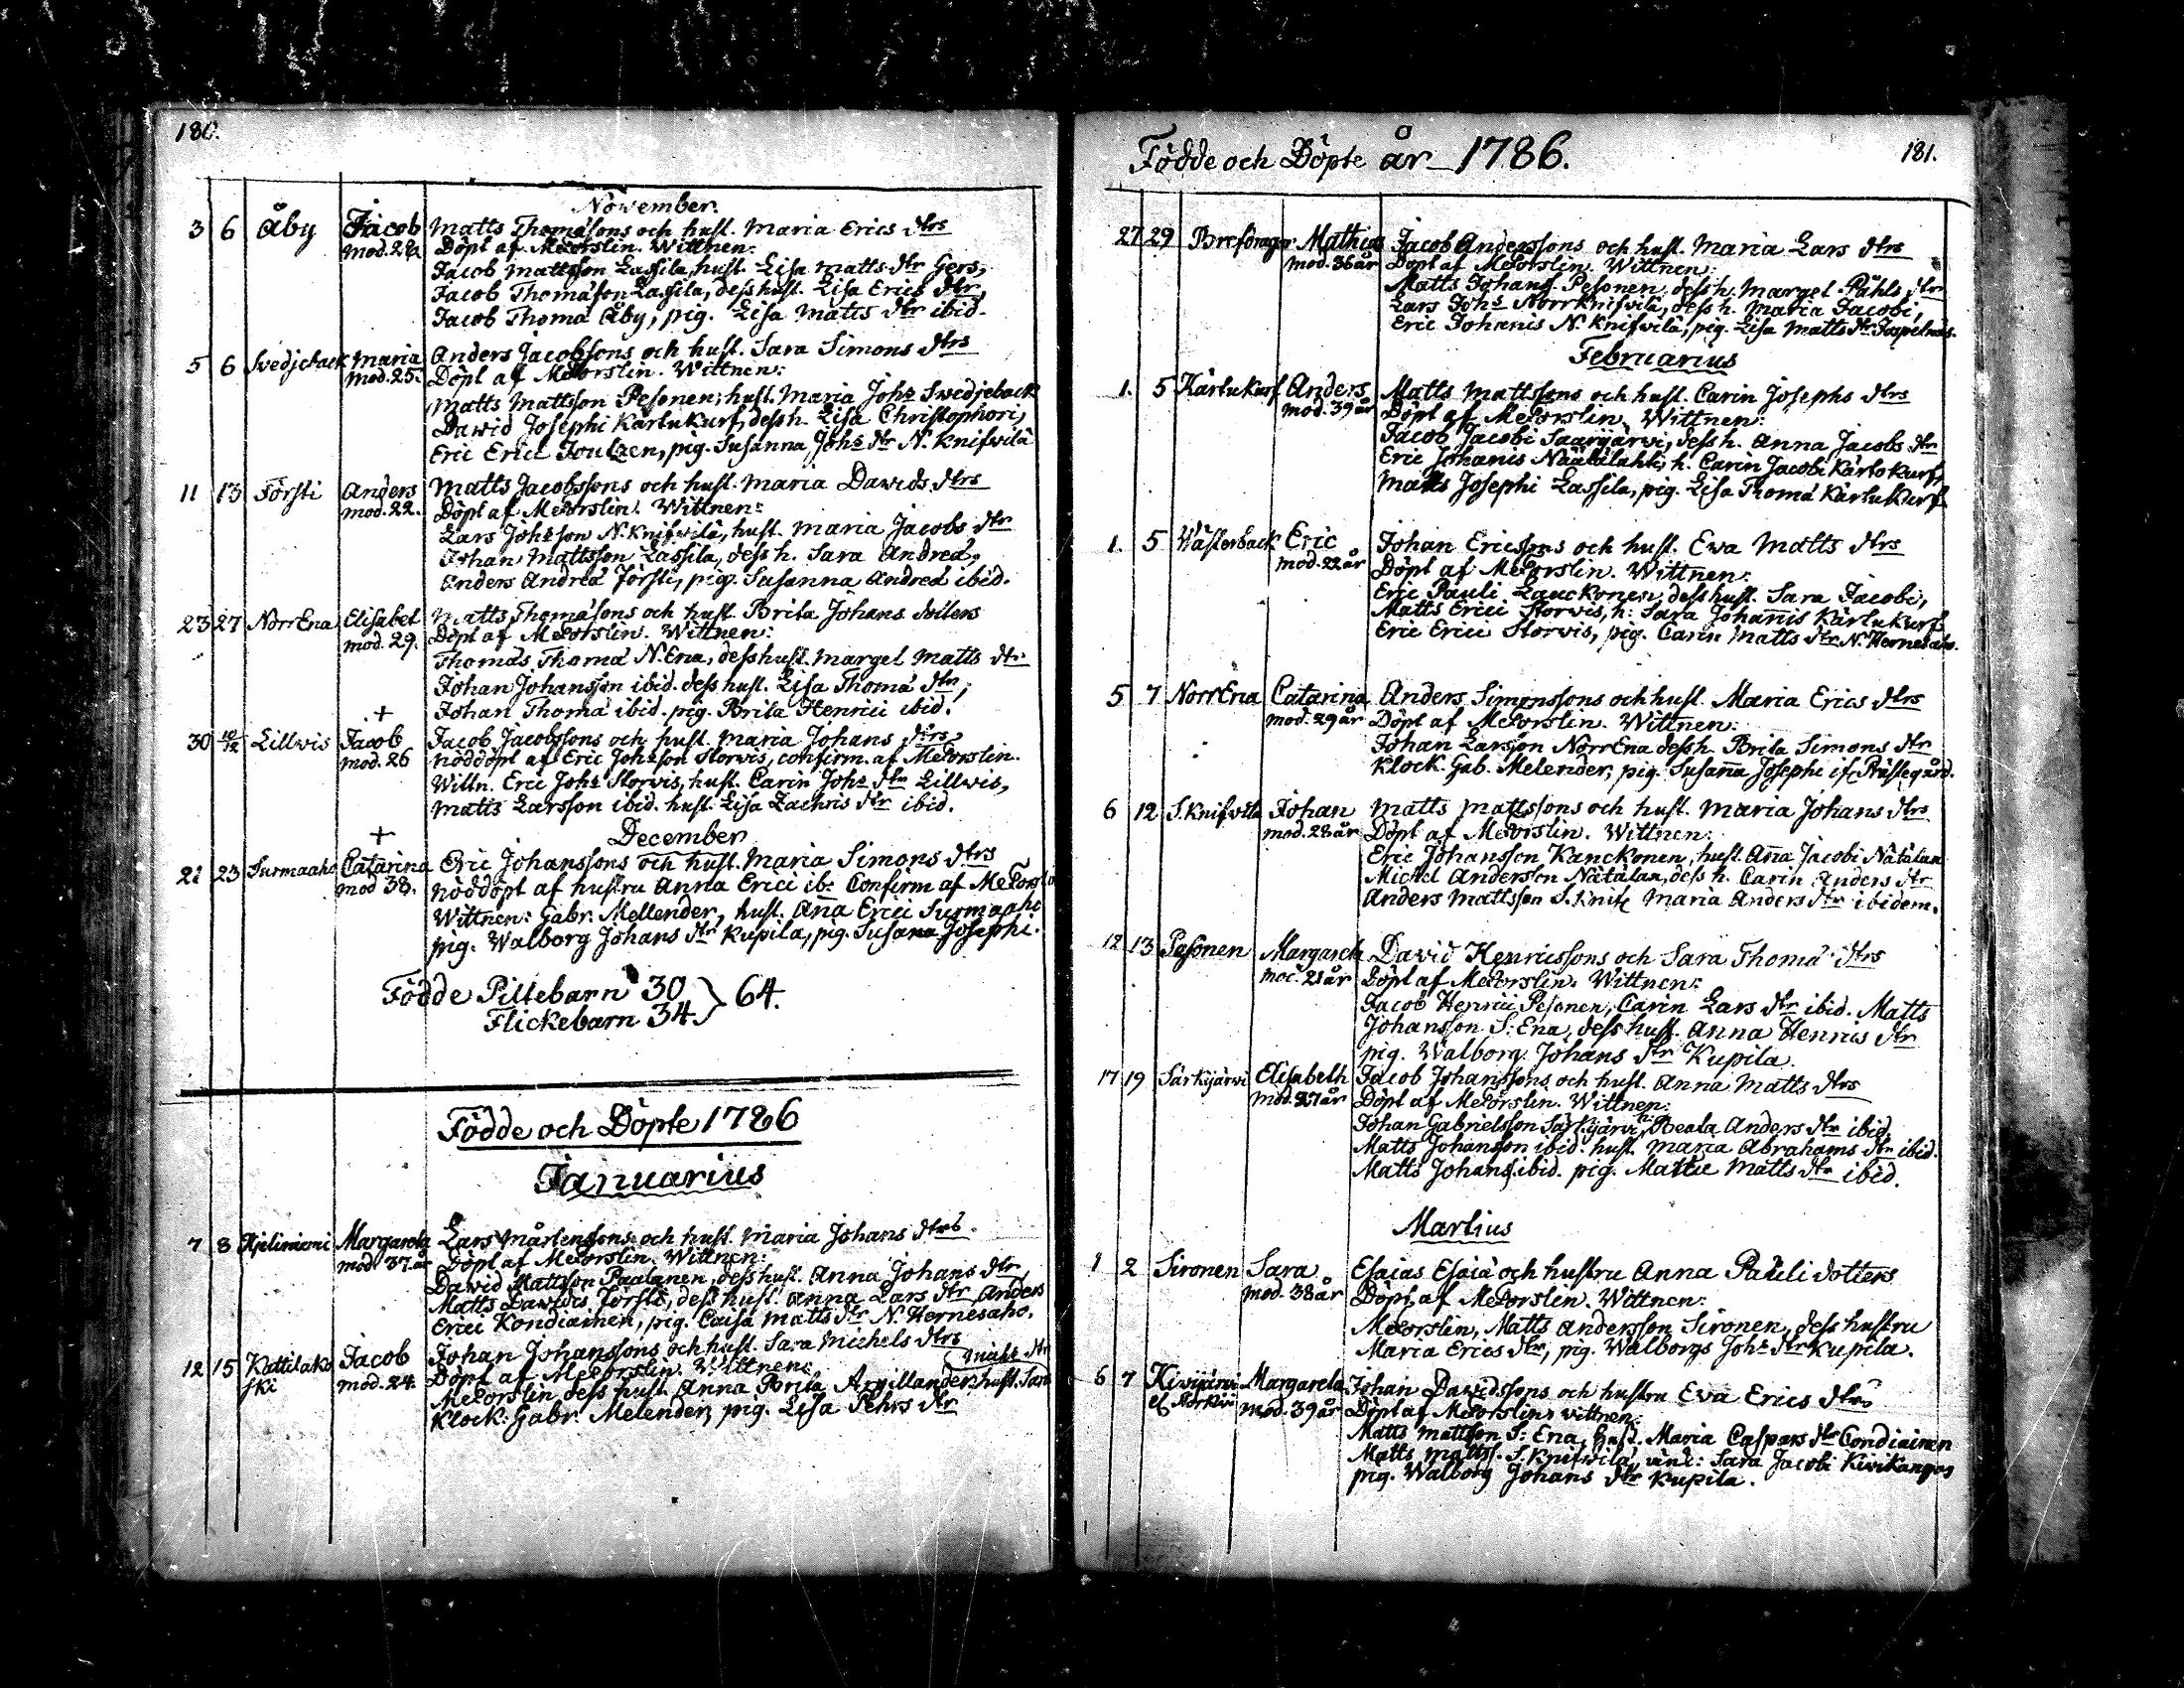 180.
November.
3 6 Åby Jacob Matts Thomæsons och hust. Maria Erics dtrs
mod. 22. Döpt af MPorslin. Wittnen:
Jacob Mattsson Lassila, hust. Lisa Matts dtr Gers,
Jacob Thomæson Lassila, dess hust. Lisa Erics dtr,
Jacob Thomæ Åby, pig. Lisa Matts dtr ibid.
5 6 Svedjeback Maria Anders Jacobssons och hust. Sara Simons dtrs
mod. 25. Döpt af MPorslin. Wittnen:
Matts Mattsson Pesonen, hust. Maria Johs Swedjeback
Dawid Josephi Kärlukurf, dess h. Lisa Christophori,
Eric Erici Joutzen, pig. Susanna Johs dtr N. Knifvilä
11 13 Försti Anders Matts Jacobssons och hust. Maria Dawids dtrs
mod. 22. Döpt af MPorslin. Wittnen:
Lars Johsson N. Knifvilä, hust. Maria Jacobs dtr
Johan Mattsson Lassila, dess h. Sara Andreæ,
Anders Andreæ Försti, pig. Susanna Andreæ ibid.
23 27 NorrEna Elisabet Matts Thomæsons och hust. Brita Johans dotters
mod. 29. Döpt af MPorslin. Wittnen:
Thomas Thomæ N. Ena, dess hust. Marget Matts dtr
Johan Johansson ibid. dess hust. Lisa Thomæ dtr,
+ Johan Thomæ ibid. pig. Brita Henrici ibid.
30 10/12 Lillwis Jacob Jacob Jacobssons och hust. Maria Johans dtrs
mod. 26 nöddöpt af Eric Johsson Storwis, confirm. af MPorslin.
Wittn. Eric Johs Storwis, hust. Carin Johs dtr Lillwis,
Matts Larsson ibid. hust. Lisa Zachris dtr ibid.
+ December
21 23 Surmaaho Catarina Eric Johanssons och hust. Maria Simons dtrs
mod 38. nöddöpt af hustru Anna Erici ib: Confirm af MPorslin
Wittnen: Gabr. Mellender, hust. Anna Erici Surmaaho
pig. Walborg Johans dtr Kupila, pig. Susana Josephi.
Födde Piltebarn 30 } 64.
Flickebarn 34
Födde och Döpte 1786
Januarius
7 8 Hjeliniemi Margareta Lars Mårtenssons och hust. Maria Johans dtrs.
mod. 37. år Döpt af MPorslin. Wittnen:
Dawid Mattson Paalanen, dess hust. Anna Johans dtr,
Matts Dawidis Försti, dess hust. Anna Lars dtr Anders
Erici Kondiainen, pig. Caisa Matts dtr N. Hernesaho.
12 15 Kattilako Jacob Johan Johanssons och hust. Sara Michels dtrs
ski mod. 24. Döpt af MPorslin. Wittnen:
MPorslin dess hust. Anna Brita Argillander, hust. Sara Matts dtr
Klock. Gabr. Melender, pig. Lisa Pehrs dtr
Födde och Döpte år 1786. 181.
27 29 Mathias Jacob Anderssons och hust. Maria Lars dtrs
mod. 36 år Döpt af MPorslin. Wittnen:
Matts Johans. Pesonen, dess h. Marget Påhls dtr
Lars Johs Norrknifvilä, dess h. Maria Jacobi,
Eric Johanis N. Knifvilä, pig. Lisa Matts dtr
Februarius
1. 5 Kärlukurf Anders Matts Mattssons och hust. Carin Josephs dtrs
mod. 39 år Döpt af MPorslin. Wittnen:
Jacob Jacobi Saarijärvi, dess h. Anna Jacobs dtr
Eric Johanis Näätälahti, h. Carin Jacobi Kärlokurf,
Matts Josephi Lassila, pig. Lisa Thomæ Kärlukurf
1. 5 Wästerback Eric Johan Ericssons och hust. Ewa Matts dtrs
mod. 22 år Döpt af MPorslin. Wittnen:
Eric Pauli Lauckonen, dess hust. Sara Jacobi,
Matts Erici Storwis, h: Sara Johannis Kärlukurf,
Eric Erici Storwis, pig. Carin Matts dtr N. Hernesaho.
5 7 NorrEna Catarina Anders Simonssons och hust. Maria Erics dtrs
mod. 29 år Döpt af MPorslin. Wittnen:
Johan Larsson NorrEna dess h. Brita Simons dtr
Klock. Gab. Melender, pig. Susanna Josephi if. Prästegård.
6 12 S. Knifvila Johan Matts Mattssons och hust. Maria Johans dtrs
mod. 28 år Döpt af MPorslin. Wittnen:
Eric Johansson Kanckonen, hust. Anna Jacobi Nätälan
Michel Andersson Nätälan, dess h. Carin Anders dtr
Anders Mattsson S. Knif. Maria Anders dtr ibidem.
12 13 Pesonen Margareta David Henricssons och Sara Thomæ dtrs
mod. 21 år Döpt af MPorslin. Wittnen:
Jacob Henrici Pesonen, Carin Lars dtr ibid. Matts
Johansson S: Ena, dess hust. Anna Henrics dtr
pig. Walborg Johans dtr Kupila.
17 19 Särkijärwi Elisabeth Jacob Johanssons och hust. Anna Matts dtrs
mod. 27 år Döpt af MPorslin. Wittnen:
Johan Gabrielsson Särkijärvi, h. Beata Anders dtr ibid.
Matts Johansson ibid. hust. Maria Abrahams dtr ibid.
Matts Johans. ibid. pig. Matts dtr ibid.
Martius
1 2 Sironen Sara Esaias Esaiæ och hustru Anna Pauli dotters
mod. 38 år Döpt af MPorslin. Wittnen:
MPorslin, Matts Andersson Sironen, dess hustru
Maria Erics dtr, pig. Walborgs Johs dtr Kupila.
6 7 Kivijärvi Margareta Johan Davidssons och hustru Eva Erics dtrs
mod. 39 år Döpt af MPorslin. wittnen:
Matts Mattsson S: Ena, hust. Maria Caspars dtr Condiainen
Matts Mattss. S. Knifvilä, änk: Sara Jacobi Kivikangas
pig. Walborg Johans dtr Kupila.